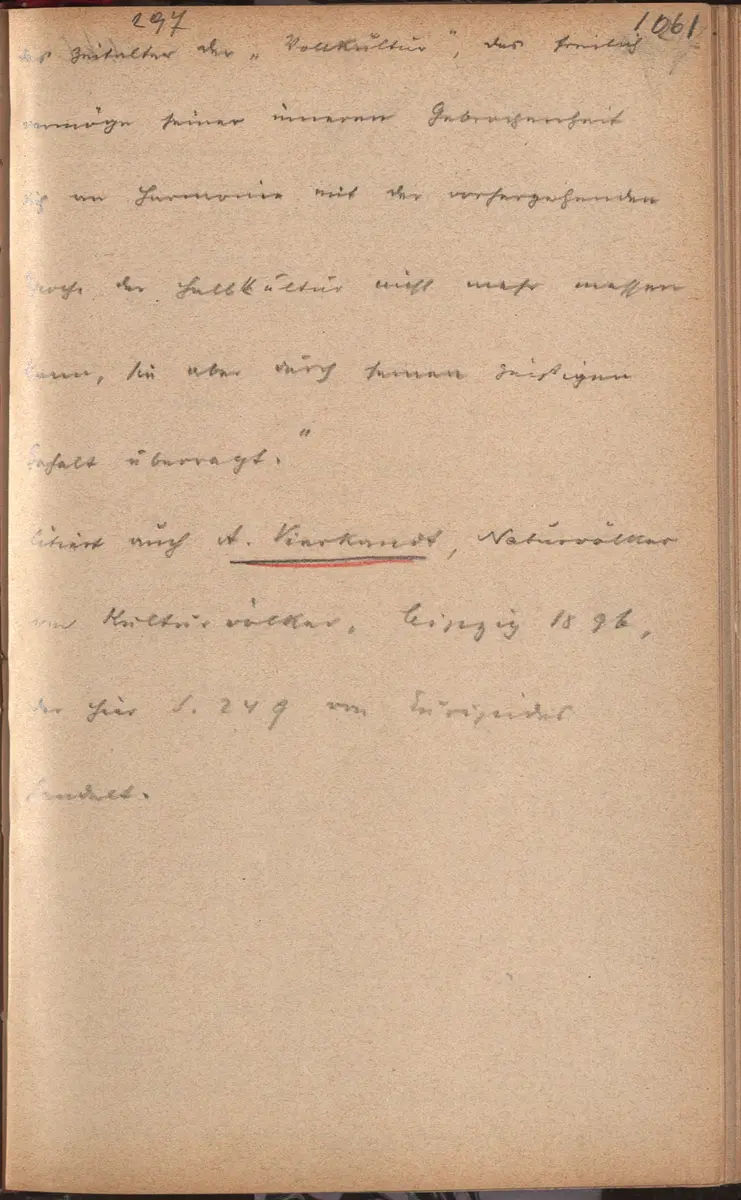 297 1061
das Zeitalter der „Vollkultur", das freilich
vermöge seiner inneren Gebrochenheit
sich an Harmonie mit der vorhergehenden
Epoche der Halbkultur nicht mehr messen
kann, sie aber durch seinen geistigen
Gehalt überragt."
Citiert auch A. Vierkandt, Naturvölker
und Kulturvölker, Leipzig 1896,
der hier S. 249 von Euripides
handelt.